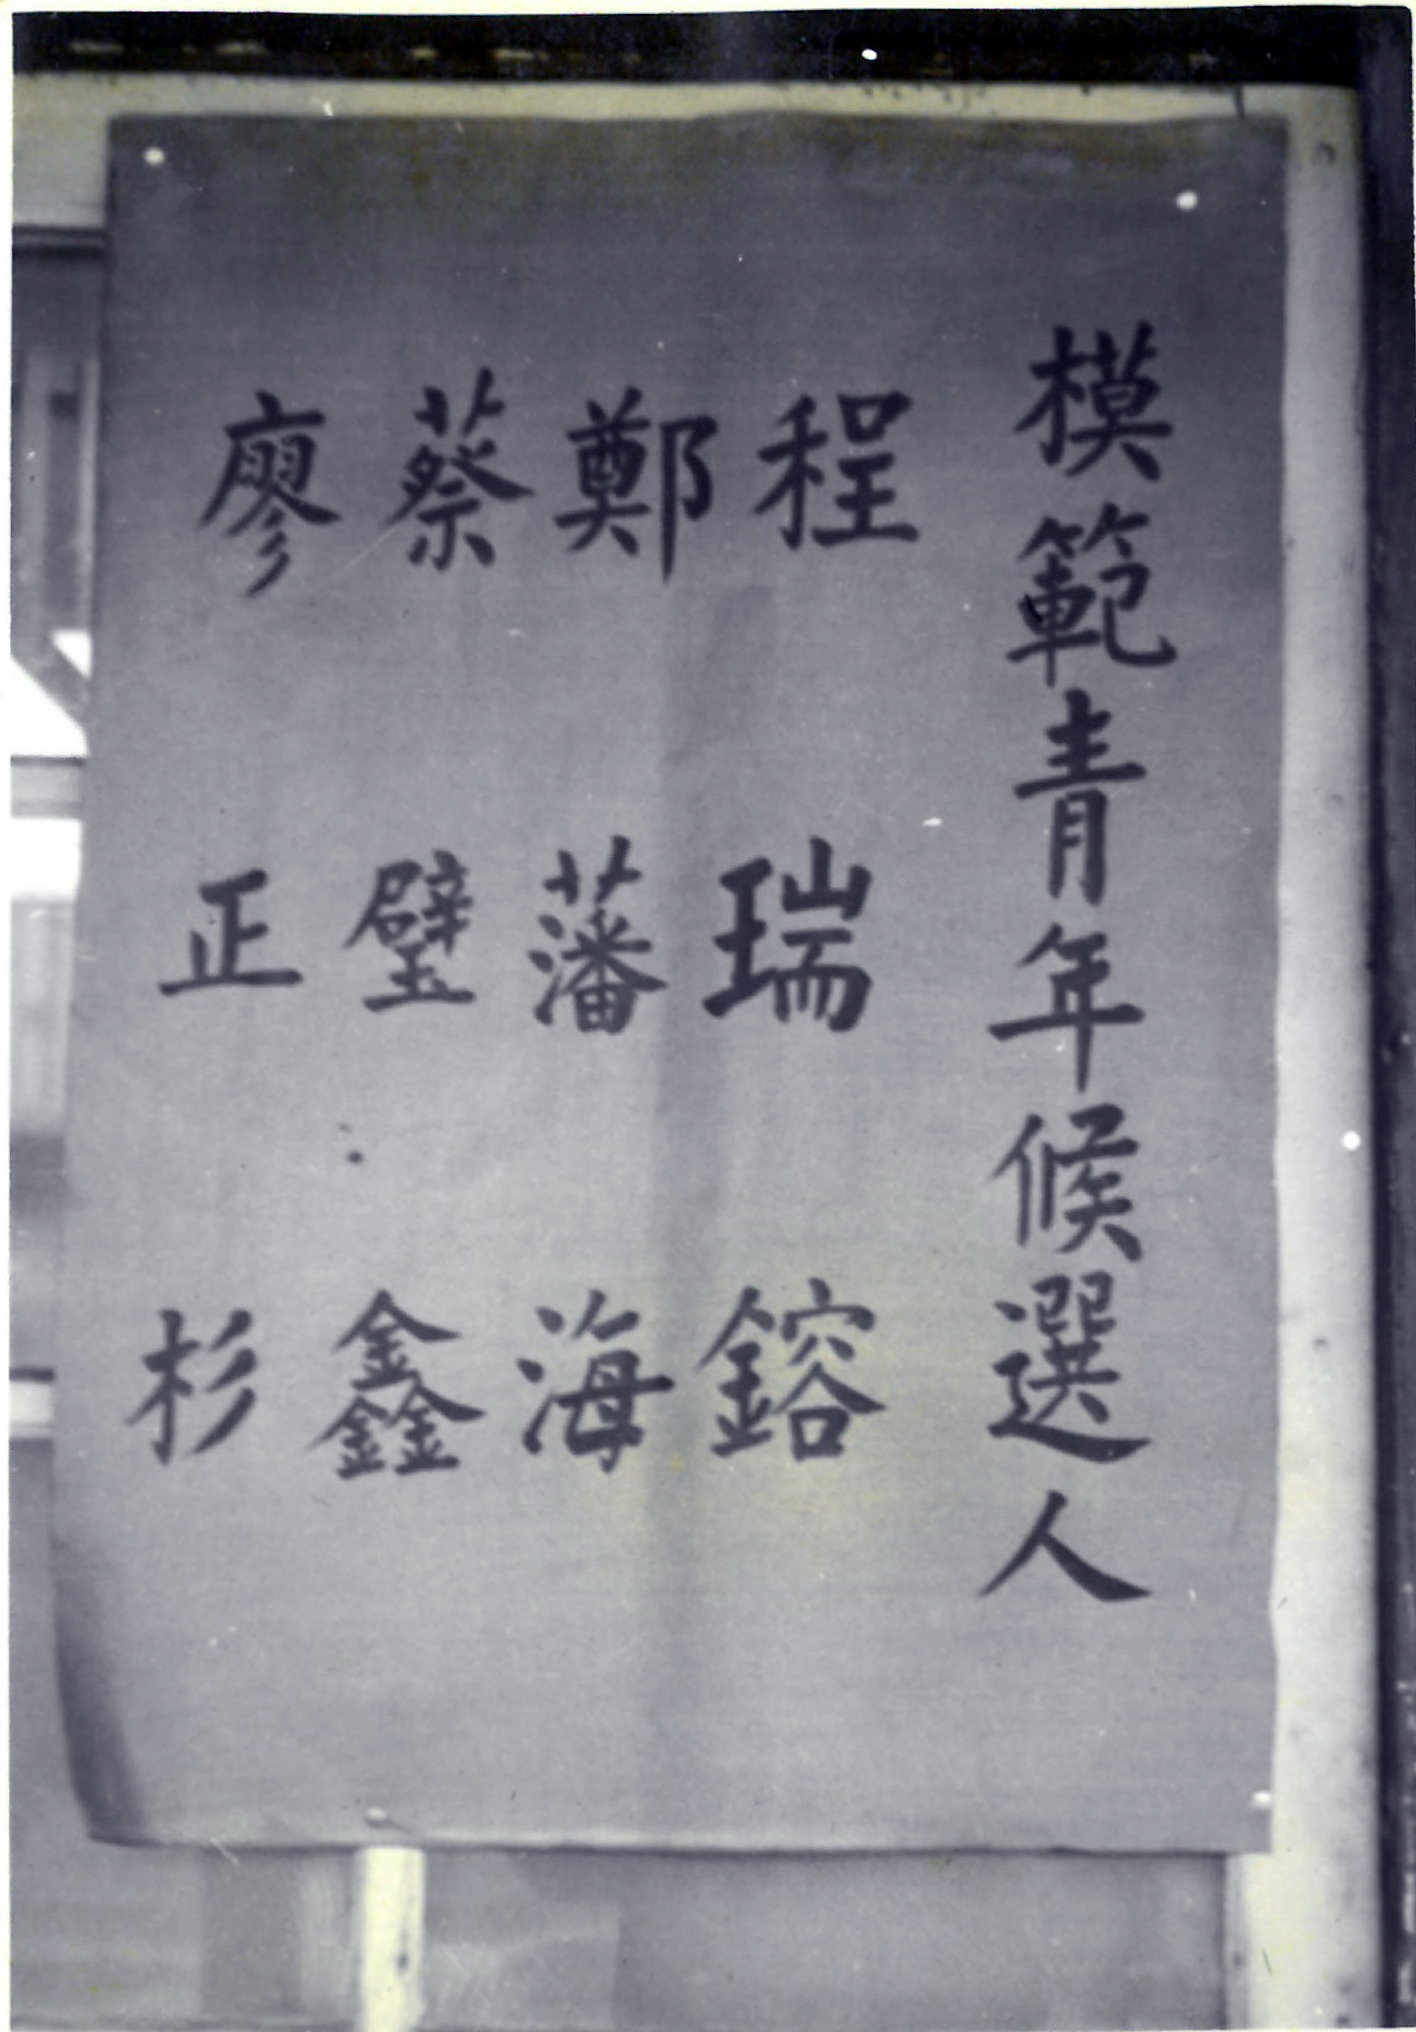 模範青年候選人
程瑞鎔
鄭藩海
蔡璧鑫
廖正杉